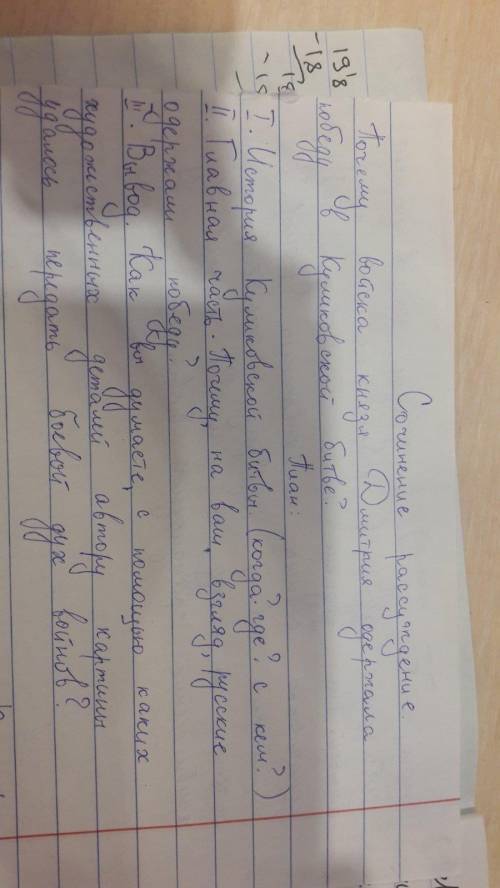 Сочинение рассуждение.
Почему войска князя Дмитрия одержала
победу в Куликовской битве?
План:
I. История Куликовской битвы (когда? где? с кем?)
II. Главная часть. Почему, на ваш взгляд, русские
одержали победу?
III. Вывод. Как вы думаете, с помощью каких
художественных деталей автору картины
удалось передать боевой дух войнов?
19'8
-18